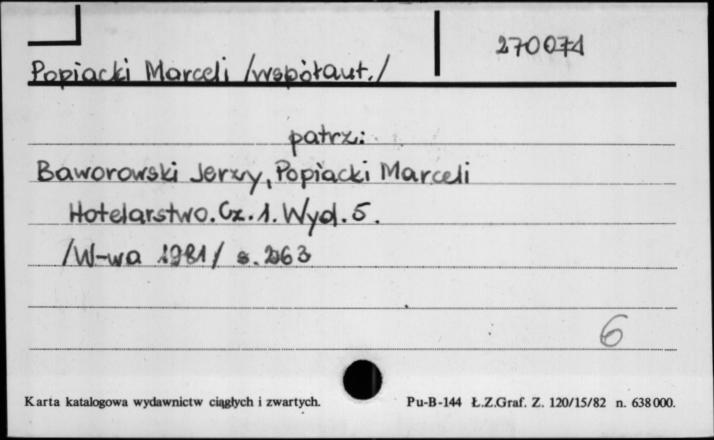 270074
Popiacki Marceli /współaut./
patrz:
Baworowski Jerzy, Popiacki Marceli
Hotelarstwo. Cz. 1. Wyd. 5.
/W-wa 1981/ s. 263
6
Karta katalogowa wydawnictw ciągłych i zwartych. Pu-B-144 Ł.Z.Graf. Z. 120/15/82 n. 638000.